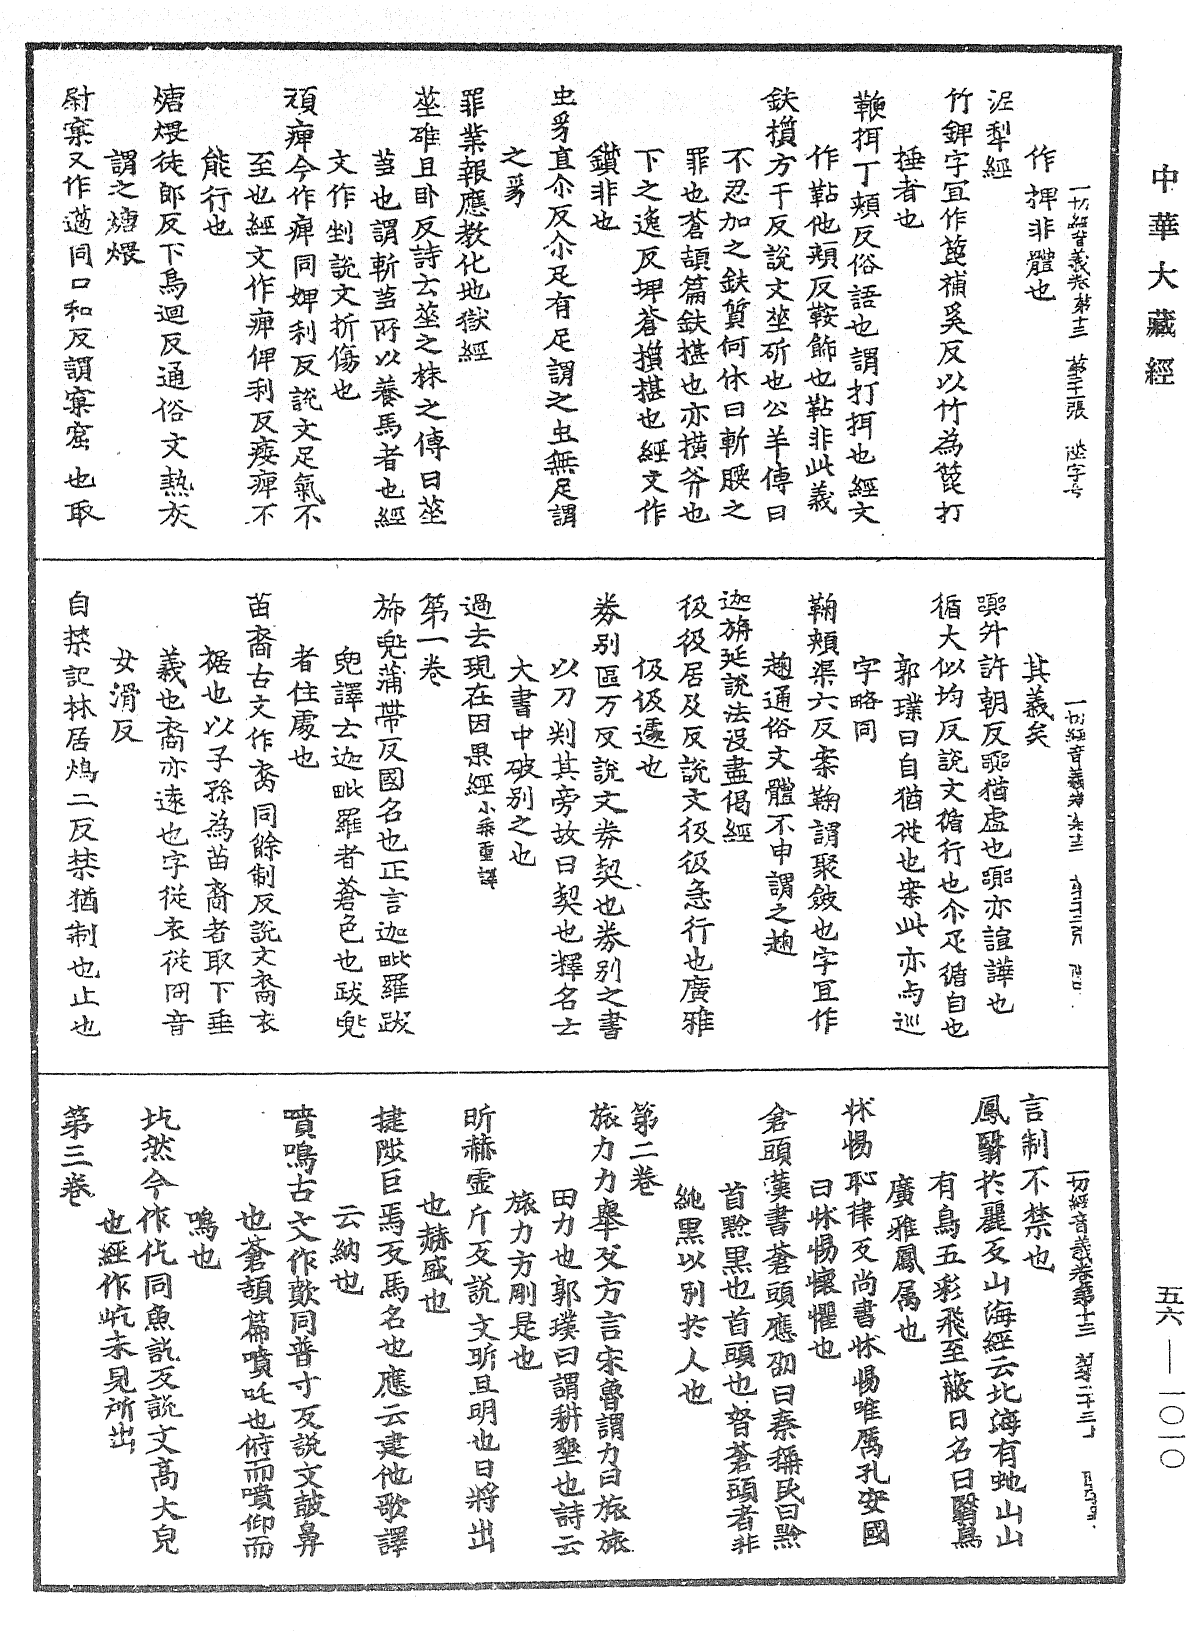 中華大藏經
一切經音義卷第十三
作捭非體也
泥犁經
竹錍字宜作篦補奚反以竹為篦打
捶者也
鞭挕丁頰反俗語也謂打挕也經文
作鞊他頰反鞍飾也鞊非此義
鈇櫍方于反說文莝斫也公羊傳曰
不忍加之鈇質何休曰斬腰之
罪也蒼頡篇鈇椹也亦橫斧也
下之逸反埤蒼櫍椹也經文作
鑕非也
虫豸直尒反尒疋有足謂之虫無足謂
之豸
罪業報應教化地獄經
莝碓且卧反詩云莝之秣之傳曰莝
芻也謂斬芻所以養馬者也經
文作剉說文折傷也
頑痺今作痺同婢利反說文足氣不
至也經文作痺俾利反痿痺不
能行也
煻煨徒郎反下烏迴反通俗文熱灰
謂之煻煨
尉窠又作薖同口和反謂窠窟也取
其義矣
嚻升許朝反嚻猶虛也嚻亦諠譁也
循大似均反說文循行也尒疋循自也
郭璞曰自猶從也案此亦与巡
字略同
鞠頰渠六反案鞠謂聚斂也字宜作
趜通俗文體不申謂之趜
迦旃延說法沒盡偈經
彶彶居及反說文彶彶急行也廣雅
伋伋遽也
券別區万反說文券契也券別之書
以刀判其旁故曰契也釋名云
大書中破別之也
過去現在因果經小乘重譯
第一卷
斾兜蒲帶反國名也正言迦毗羅跋
兜譯云迦毗羅者蒼色也跋兜
者住處也
苗裔古文作𠂷同餘制反說文裔衣
裾也以子孫為苗裔者取下垂
義也裔亦遠也字從衣從㕯音
女滑反
自禁記林居鴆二反禁猶制也止也
一切經音義卷第十三
言制不禁也
鳳翳於麗反山海經云北海有虵山山
有鳥五彩飛至蔽日名曰翳鳥
廣雅鳳属也
怵惕恥律反尚書怵惕唯厲孔安國
曰怵惕懷懼也
倉頭漢書蒼頭應劭曰秦稱民曰黔
首黔黑也首頭也督蒼頭者非
純黑以別於人也
第二卷
旅力力舉反方言宋魯謂力曰旅旅
田力也郭璞曰謂耕墾也詩云
旅力方剛是也
昕赫虛斤反說文昕旦明也日將出
也赫盛也
揵陟巨焉反馬名也應云建他歌譯
云納也
噴鳴古文作歕同普寸反說文鼓鼻
也蒼頡篇噴吒也俯而噴仰而
鳴也
圪然今作仡同魚訖反說文高大皃
也經作屹未見所出
第三卷
五六—一〇一〇